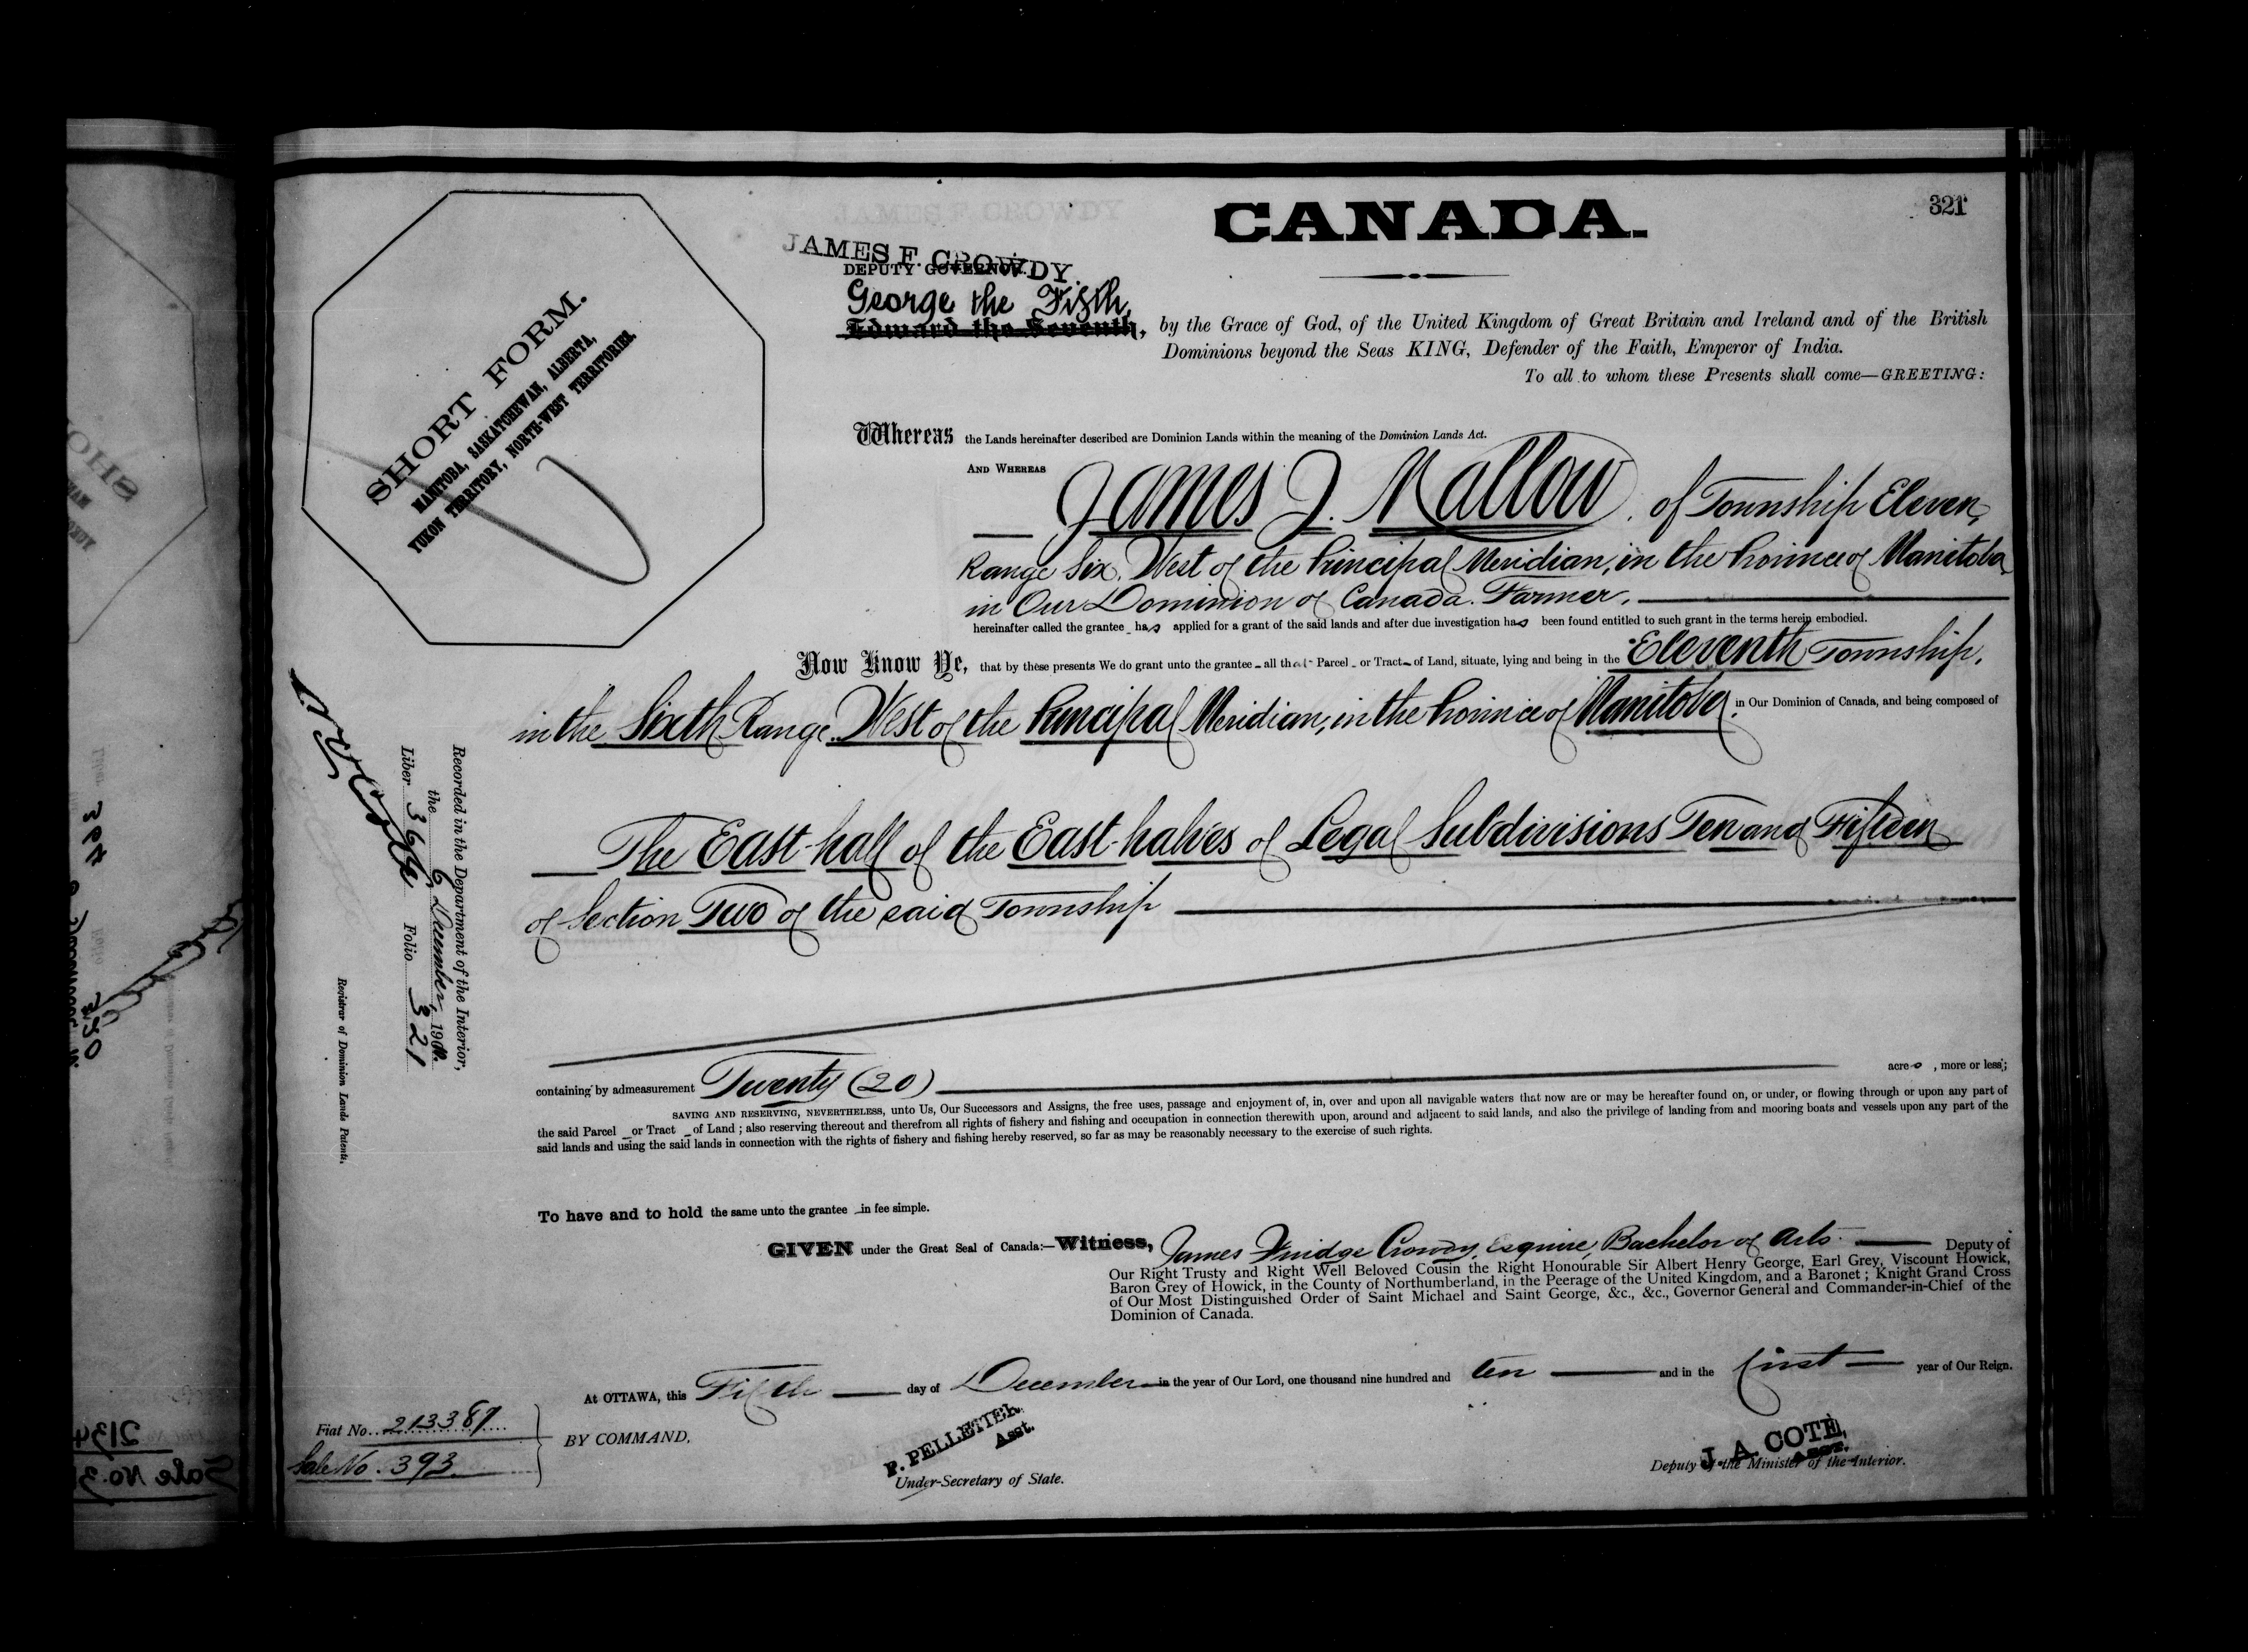 321
CANADA.
JAMES F. CROWDY.
DEPUTY GOVERNOR.
George the Fifth,
Edward the Seventh, by the Grace of God, of the United Kingdom of Great Britain and Ireland and of the British
Dominions beyond the Seas KING, Defender of the Faith, Emperor of India.
To all to whom these Presents shall come—GREETING:
SHORT FORM.
MANITOBA, SASKATCHEWAN, ALBERTA,
YUKON TERRITORY, NORTH-WEST TERRITORIES.
Whereas the Lands hereinafter described are Dominion Lands within the meaning of the Dominion Lands Act.
AND WHEREAS
James J. Mallow, of Township Eleven,
Range Six, West of the Principal Meridian, in the Province of Manitoba
in Our Dominion of Canada. Farmer.
hereinafter called the grantee has applied for a grant of the said lands and after due investigation has been found entitled to such grant in the terms herein embodied.
Now Know Ye, that by these presents We do grant unto the grantee all that Parcel or Tract of Land, situate, lying and being in the Eleventh Township,
in the Sixth Range, West of the Principal Meridian, in the Province of Manitoba, in Our Dominion of Canada, and being composed of
The East-half of the East-halves of Legal Subdivisions Ten and Fifteen
of Section Two of the said Township
containing by admeasurement Twenty (20) acres, more or less;
SAVING AND RESERVING, NEVERTHELESS, unto Us, Our Successors and Assigns, the free uses, passage and enjoyment of, in, over and upon all navigable waters that now are or may be hereafter found on, or under, or flowing through or upon any part of
the said Parcel or Tract of Land; also reserving thereout and therefrom all rights of fishery and fishing and occupation in connection therewith upon, around and adjacent to said lands, and also the privilege of landing from and mooring boats and vessels upon any part of the
said lands and using the said lands in connection with the rights of fishery and fishing hereby reserved, so far as may be reasonably necessary to the exercise of such rights.
To have and to hold the same unto the grantee in fee simple.
GIVEN under the Great Seal of Canada:—Witness, James Fuidge Crowdy, Esquire, Bachelor of Arts Deputy of
Our Right Trusty and Right Well Beloved Cousin the Right Honourable Sir Albert Henry George, Earl Grey, Viscount Howick,
Baron Grey of Howick, in the County of Northumberland, in the Peerage of the United Kingdom, and a Baronet; Knight Grand Cross
of Our Most Distinguished Order of Saint Michael and Saint George, &c., &c., Governor General and Commander-in-Chief of the
Dominion of Canada.
At OTTAWA, this Fifth day of December in the year of Our Lord, one thousand nine hundred and ten and in the first year of Our Reign.
BY COMMAND,
P. PELLETIER,
Asst.
Under-Secretary of State.
J. A. COTE,
ASST.
Deputy of the Minister of the Interior.
Fiat No. 213387
Sale No. 393.
Recorded in the Department of the Interior,
the 6 December, 19
Liber Folio 321
Registrar of Dominion Lands Patents.